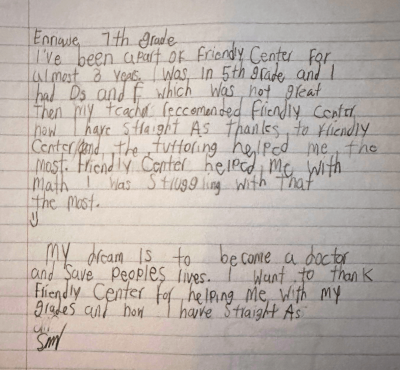 Enrique, 7th grade
I've been apart of Friendly Center for
almost 3 years. I was in 5th grade and I
had Ds and F which was not great
Then my teacher reccomended Friendly Center,
now I have straight As thanks to Friendly
Center and the tuttoring helped me the
most. Friendly Center helped me with
math I was struggling with that
the most.
My dream is to become a doctor
and save peoples lives. I want to thank
Friendly Center for helping me with my
grades and now I have straight As